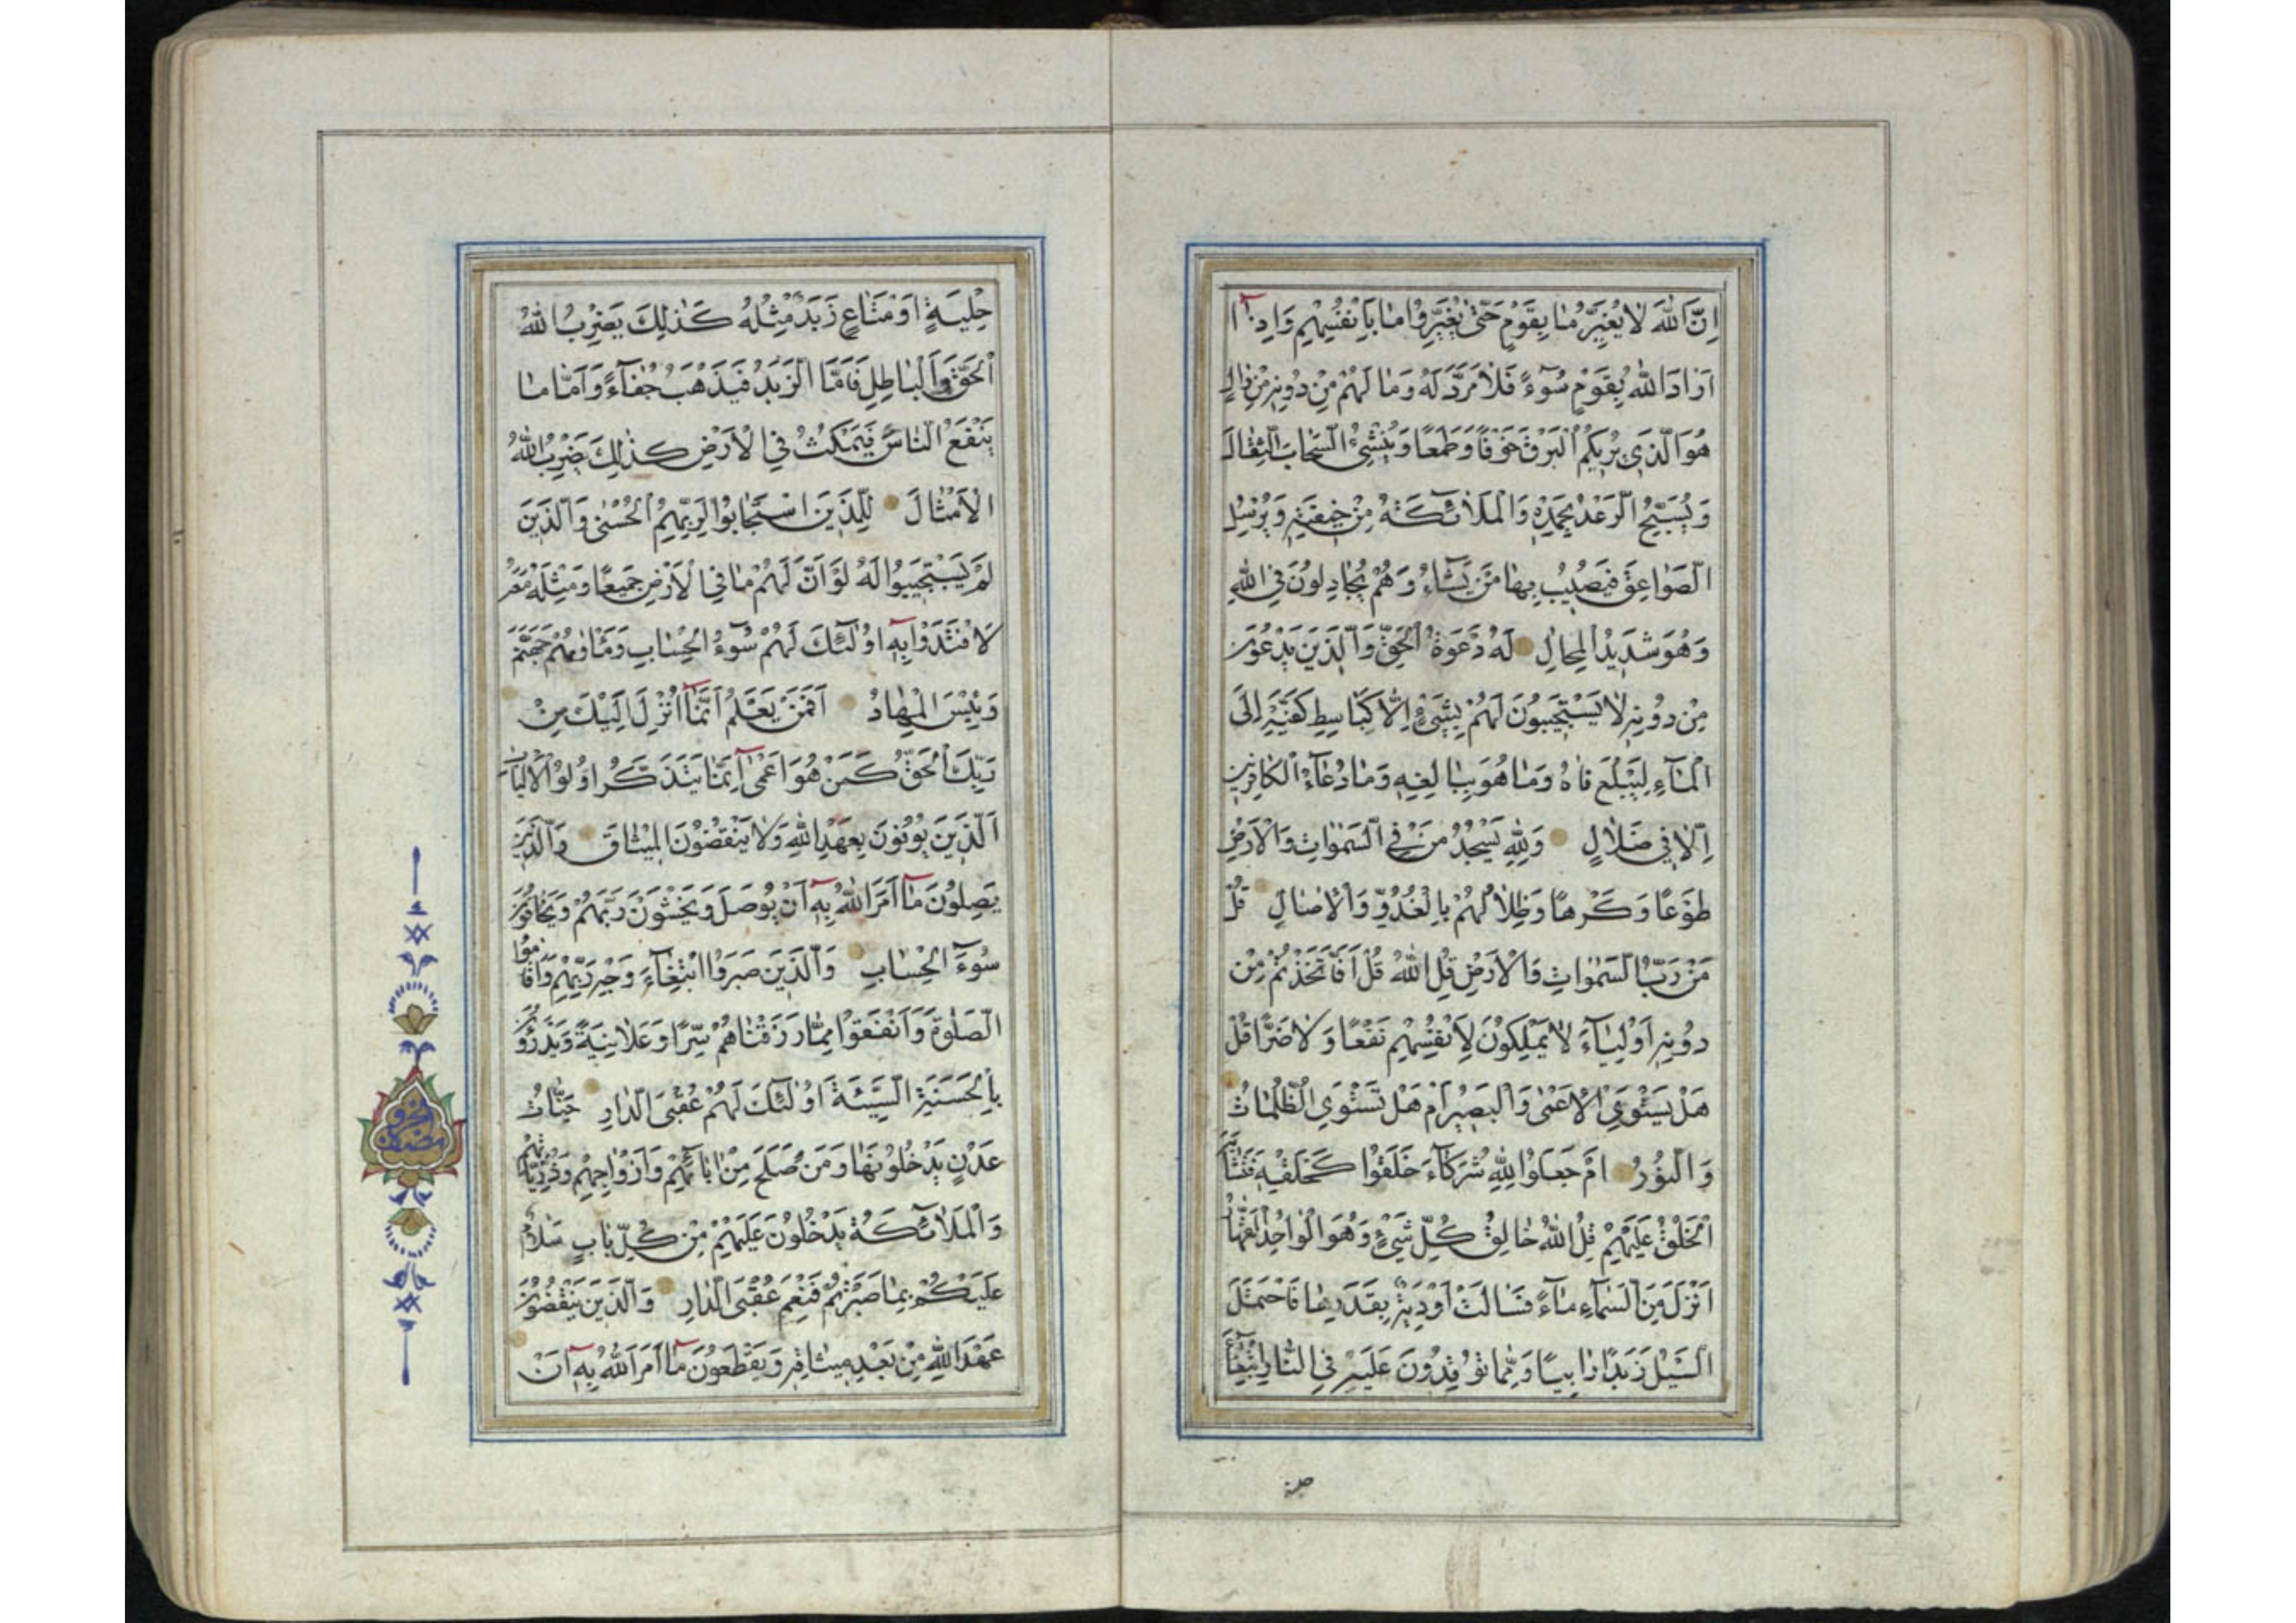 اِنَّ اللّٰهَ لَا يُغَيِّرُ مَا بِقَوْمٍ حَتّٰى يُغَيِّرُوا مَا بِاَنْفُسِهِمْ وَاِذَآ
اَرَادَ اللّٰهُ بِقَوْمٍ سُوٓءً فَلَا مَرَدَّ لَهُ وَمَا لَهُمْ مِنْ دُونِهِ مِنْ وَالٍ
هُوَ الَّذِى يُرِيكُمُ الْبَرْقَ خَوْفًا وَطَمَعًا وَيُنْشِئُ السَّحَابَ الثِّقَالَ
وَيُسَبِّحُ الرَّعْدُ بِحَمْدِهِ وَالْمَلَائِكَةُ مِنْ خِيفَتِهِ وَيُرْسِلُ
الصَّوَاعِقَ فَيُصِيبُ بِهَا مَنْ يَشَاءُ وَهُمْ يُجَادِلُونَ فِى اللّٰهِ
وَهُوَ شَدِيدُ الْمِحَالِ لَهُ دَعْوَةُ الْحَقِّ وَالَّذِينَ يَدْعُونَ
مِنْ دُونِهِ لَا يَسْتَجِيبُونَ لَهُمْ بِشَىْءٍ اِلَّا كَبَاسِطِ كَفَّيْهِ اِلَى
الْمَآءِ لِيَبْلُغَ فَاهُ وَمَا هُوَ بِبَالِغِهِ وَمَا دُعَآءُ الْكَافِرِينَ
اِلَّا فِى ضَلَالٍ وَلِلّٰهِ يَسْجُدُ مَنْ فِى السَّمٰوَاتِ وَالْاَرْضِ
طَوْعًا وَكَرْهًا وَظِلَالُهُمْ بِالْغُدُوِّ وَالْاٰصَالِ قُلْ
مَنْ رَبُّ السَّمٰوَاتِ وَالْاَرْضِ قُلِ اللّٰهُ قُلْ اَفَاتَّخَذْتُمْ مِنْ
دُونِهِ اَوْلِيَآءَ لَا يَمْلِكُونَ لِاَنْفُسِهِمْ نَفْعًا وَلَا ضَرًّا قُلْ
هَلْ يَسْتَوِى الْاَعْمٰى وَالْبَصِيرُ اَمْ هَلْ تَسْتَوِى الظُّلُمَاتُ
وَالنُّورُ اَمْ جَعَلُوا لِلّٰهِ شُرَكَآءَ خَلَقُوا كَخَلْقِهِ فَتَشَابَهَ
الْخَلْقُ عَلَيْهِمْ قُلِ اللّٰهُ خَالِقُ كُلِّ شَىْءٍ وَهُوَ الْوَاحِدُ الْقَهَّارُ
اَنْزَلَ مِنَ السَّمَآءِ مَآءً فَسَالَتْ اَوْدِيَةٌ بِقَدَرِهَا فَاحْتَمَلَ
السَّيْلُ زَبَدًا رَابِيًا وَمِمَّا تُوقِدُونَ عَلَيْهِ فِى النَّارِ ابْتِغَآءَ
حِلْيَةٍ اَوْ مَتَاعٍ زَبَدٌ مِثْلُهُ كَذٰلِكَ يَضْرِبُ اللّٰهُ
الْحَقَّ وَالْبَاطِلَ فَاَمَّا الزَّبَدُ فَيَذْهَبُ جُفَآءً وَاَمَّا مَا
يَنْفَعُ النَّاسَ فَيَمْكُثُ فِى الْاَرْضِ كَذٰلِكَ يَضْرِبُ اللّٰهُ
الْاَمْثَالَ لِلَّذِينَ اسْتَجَابُوا لِرَبِّهِمُ الْحُسْنٰى وَالَّذِينَ
لَمْ يَسْتَجِيبُوا لَهُ لَوْ اَنَّ لَهُمْ مَا فِى الْاَرْضِ جَمِيعًا وَمِثْلَهُ مَعَهُ
لَافْتَدَوْا بِهِٓ اُولٰٓئِكَ لَهُمْ سُوٓءُ الْحِسَابِ وَمَاْوٰيهُمْ جَهَنَّمُ
وَبِئْسَ الْمِهَادُ اَفَمَنْ يَعْلَمُ اَنَّمَآ اُنْزِلَ اِلَيْكَ مِنْ
رَبِّكَ الْحَقُّ كَمَنْ هُوَ اَعْمٰى اِنَّمَا يَتَذَكَّرُ اُولُوا الْاَلْبَابِ
اَلَّذِينَ يُوفُونَ بِعَهْدِ اللّٰهِ وَلَا يَنْقُضُونَ الْمِيثَاقَ وَالَّذِينَ
يَصِلُونَ مَآ اَمَرَ اللّٰهُ بِهِٓ اَنْ يُوصَلَ وَيَخْشَوْنَ رَبَّهُمْ وَيَخَافُونَ
سُوٓءَ الْحِسَابِ وَالَّذِينَ صَبَرُوا ابْتِغَآءَ وَجْهِ رَبِّهِمْ وَاَقَامُوا
الصَّلٰوةَ وَاَنْفَقُوا مِمَّا رَزَقْنَاهُمْ سِرًّا وَعَلَانِيَةً وَيَدْرَؤُنَ
بِالْحَسَنَةِ السَّيِّئَةَ اُولٰٓئِكَ لَهُمْ عُقْبَى الدَّارِ جَنَّاتُ
عَدْنٍ يَدْخُلُونَهَا وَمَنْ صَلَحَ مِنْ اٰبَآئِهِمْ وَاَزْوَاجِهِمْ وَذُرِّيَّاتِهِمْ
وَالْمَلَائِكَةُ يَدْخُلُونَ عَلَيْهِمْ مِنْ كُلِّ بَابٍ سَلَامٌ
عَلَيْكُمْ بِمَا صَبَرْتُمْ فَنِعْمَ عُقْبَى الدَّارِ وَالَّذِينَ يَنْقُضُونَ
عَهْدَ اللّٰهِ مِنْ بَعْدِ مِيثَاقِهِ وَيَقْطَعُونَ مَآ اَمَرَ اللّٰهُ بِهِٓ اَنْ